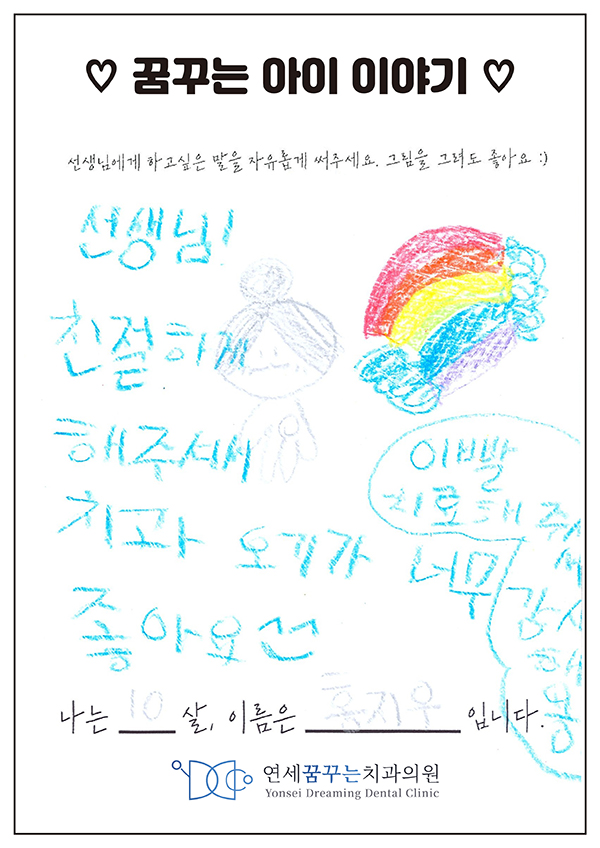 ♡ 꿈꾸는 아이 이야기 ♡
선생님에게 하고싶은 말을 자유롭게 써주세요. 그림을 그려도 좋아요 :)
선생님!
친절하게
해주셔서
치과 오기가 너무
좋아요
이빨
치료해 주셔서
감사
해용
나는 10 살, 이름은 홍지우 입니다.
연세꿈꾸는치과의원
Yonsei Dreaming Dental Clinic